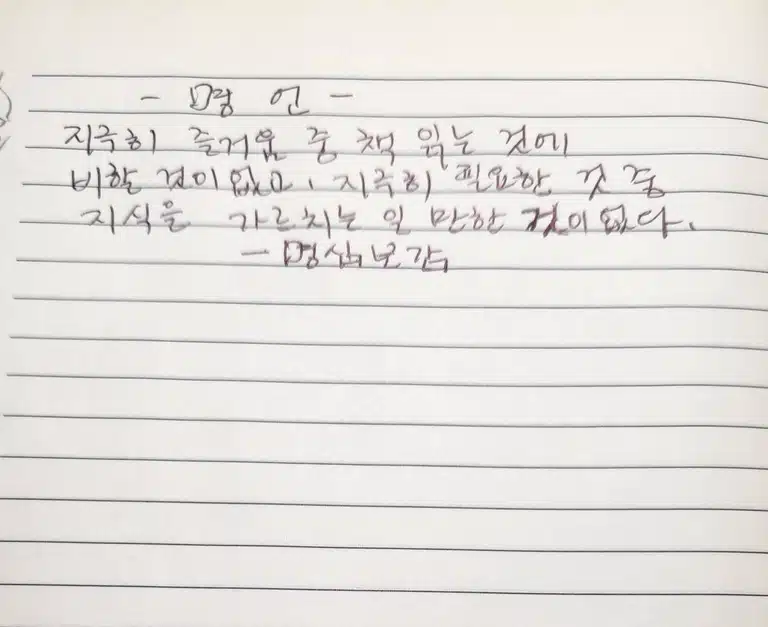 - 명 언 -
지극히 즐거움 중 책 읽는 것에
비할 것이 없고, 지극히 필요한 것 중
지식을 가르치는 일 만한 것이 없다.
- 명심보감